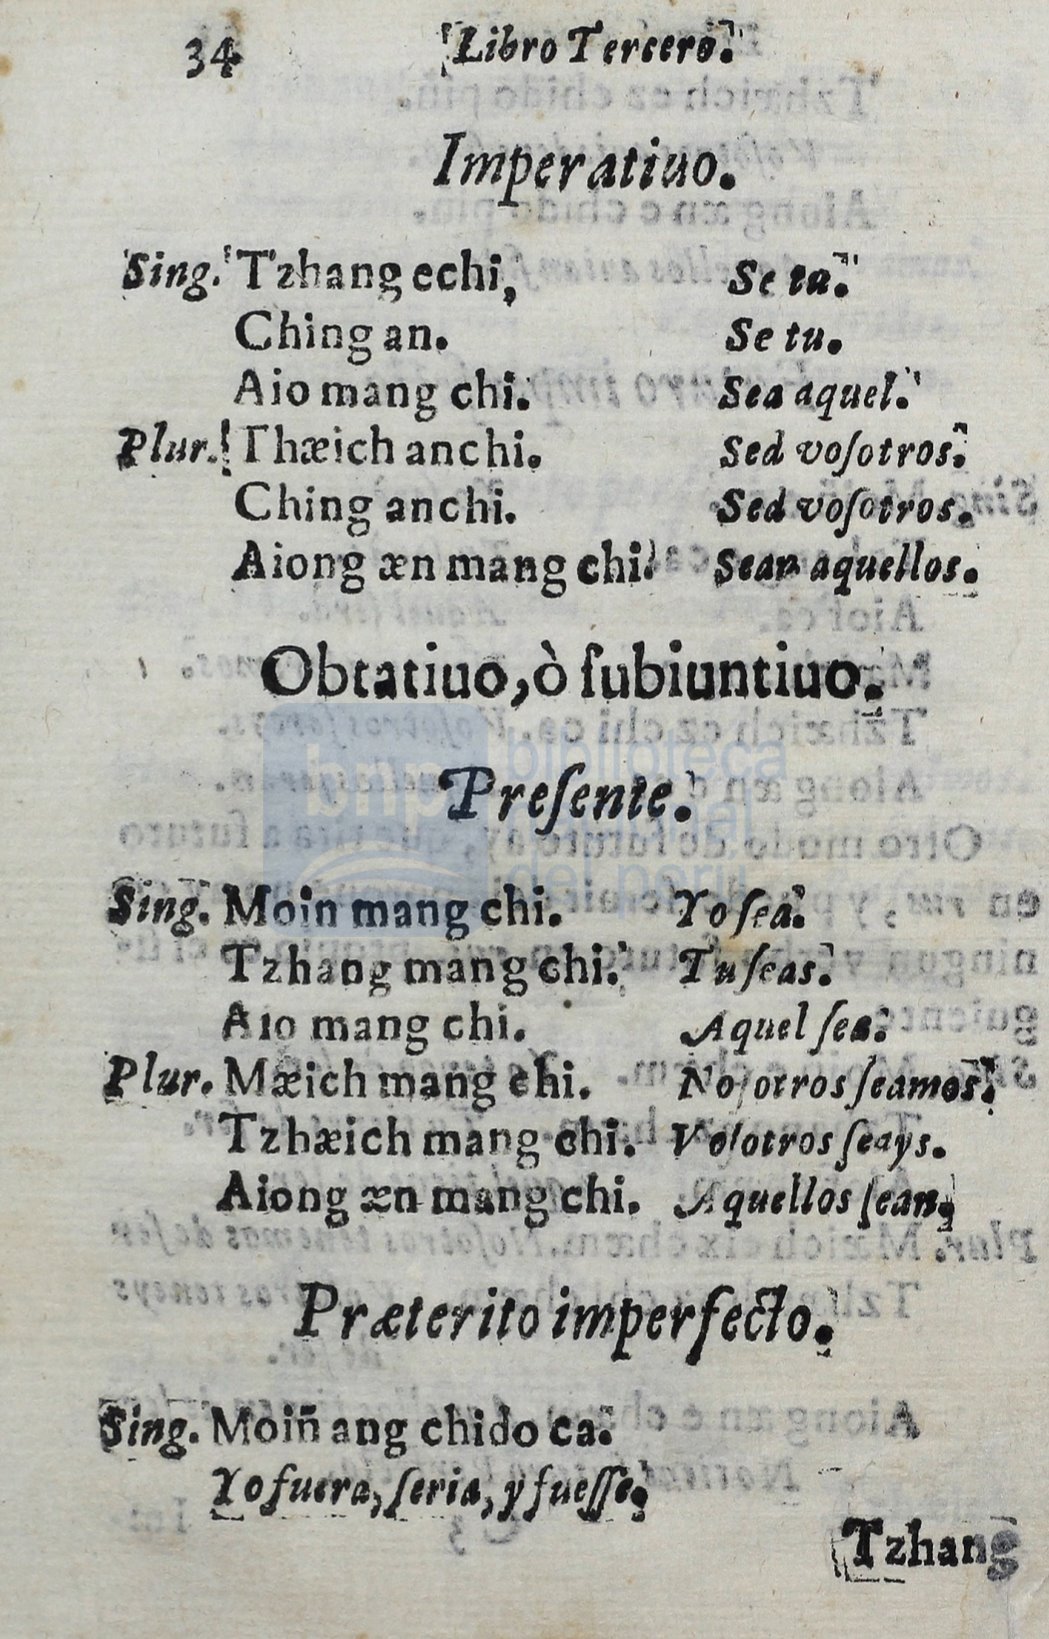 34 Libro Tercero.
Imperatiuo.
Sing. Tzhang echi, Se tu.
Ching an. Se tu.
Aio mang chi. Sea aquel.
Plur. Thæich anchi. Sed voſotros.
Ching anchi. Sed voſotros.
Aiong æn mang chi. Sean aquellos.
Obtatiuo, ò ſubiuntiuo.
Preſente.
Sing. Moin mang chi. Yo ſea.
Tzhang mang chi. Tu ſeas.
Aio mang chi. Aquel ſea.
Plur. Mæich mang chi. Noſotros ſeamos.
Tzhæich mang chi. Voſotros ſeays.
Aiong æn mang chi. Aquellos ſean,
Præterito imperfecto.
Sing. Moin̄ ang chido ca.
Yo fuera, ſeria, y fueſſe.
Tzhang
biblioteca
nacional
del perú
bnp